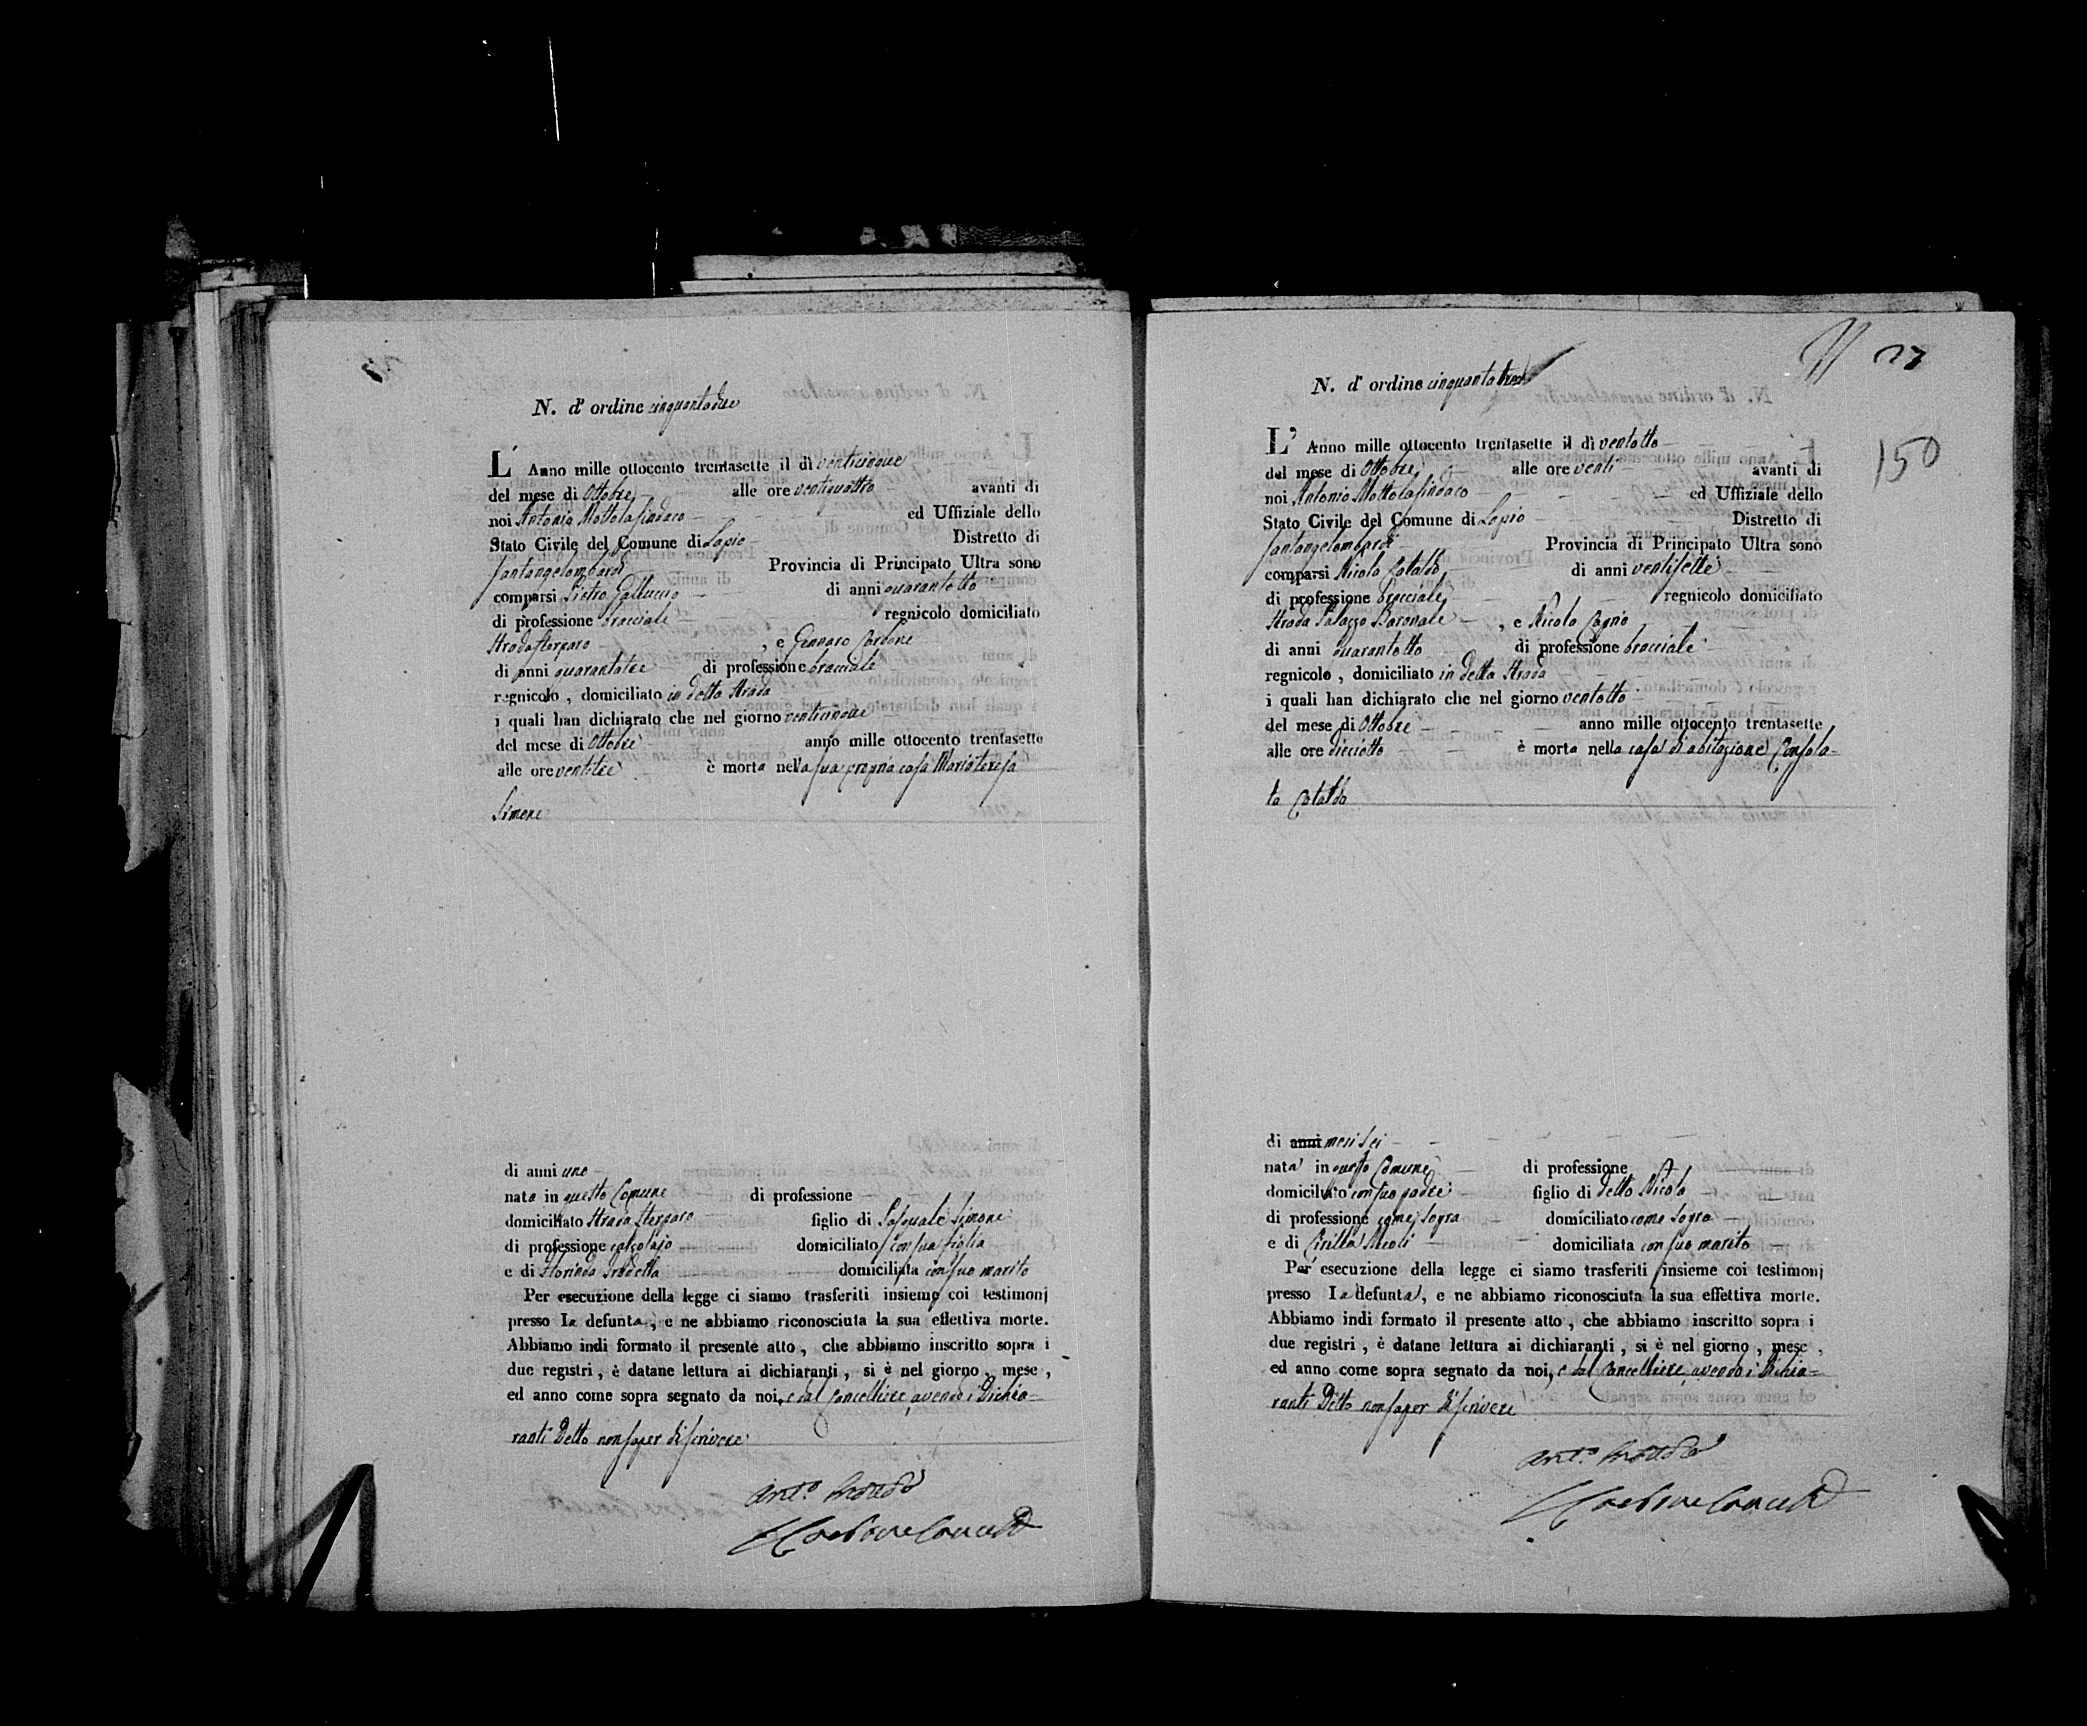 N. d' ordine cinquantadue
L' Anno mille ottocento trentasette il dì venticinque
del mese di Ottobre alle ore ventiquattro avanti di
noi Antonio Mottola Sindaco ed Uffiziale dello
Stato Civile del Comune di Lapio Distretto di
Santangelombardi Provincia di Principato Ultra sono
comparsi Pietro Gallucció di anni quarantotto
di professione bracciale regnicolo domiciliato
Strada Sterparo , e Gennaro Carbone
di anni quarantatre di professione bracciale
regnicolo , domiciliato in detta Strada
i quali han dichiarato che nel giorno venticinque
del mese di Ottobre anno mille ottocento trentasette
alle ore ventitre è morta nella sua propria casa Mariateresa
Simone
di anni uno
nata in questo Comune di professione
domiciliato Strada Sterparo figlio di Pasquale Simone
di professione calzolajo domiciliato con sua figlia
e di Florinda domiciliata con suo marito
Per esecuzione della legge ci siamo trasferiti insieme coi testimonj
presso la defunta, e ne abbiamo riconosciuta la sua effettiva morte.
Abbiamo indi formato il presente atto , che abbiamo inscritto sopra i
due registri , è datane lettura ai dichiaranti , si è nel giorno , mese ,
ed anno come sopra segnato da noi, e dal Cancelliere, avendo i Dichia=
ranti Detto non saper di scrivere
Ant.o
27
150
N. d' ordine cinquantatre
L' Anno mille ottocento trentasette il dì ventotto
del mese di Ottobre alle ore venti avanti di
noi Antonio Mottola Sindaco ed Uffiziale dello
Stato Civile del Comune di Lapio Distretto di
Santangelombardi Provincia di Principato Ultra sono
comparsi Nicola Cataldo di anni ventisette
di professione bracciale regnicolo domiciliato
Strada Palazzo Baronale , e Nicola Cogno
di anni quarantotto di professione bracciale
regnicolo , domiciliato in detta Strada
i quali han dichiarato che nel giorno ventotto
del mese di Ottobre anno mille ottocento trentasette
alle ore diciotto è morta nella casa di abitazione Consola=
ta Cataldo
di anni mesi sei
nata in questo Comune di professione
domiciliato con suo padre figlio di detto Nicola
di professione come sopra domiciliato come sopra
e di Cirilla Meoli domiciliata con suo marito
Per esecuzione della legge ci siamo trasferiti insieme coi testimonj
presso la defunta, e ne abbiamo riconosciuta la sua effettiva morte.
Abbiamo indi formato il presente atto , che abbiamo inscritto sopra i
due registri , è datane lettura ai dichiaranti , si è nel giorno , mese ,
ed anno come sopra segnato da noi, e dal Cancelliere, avendo i Dichia=
ranti Detto non saper di scrivere
Ant.o